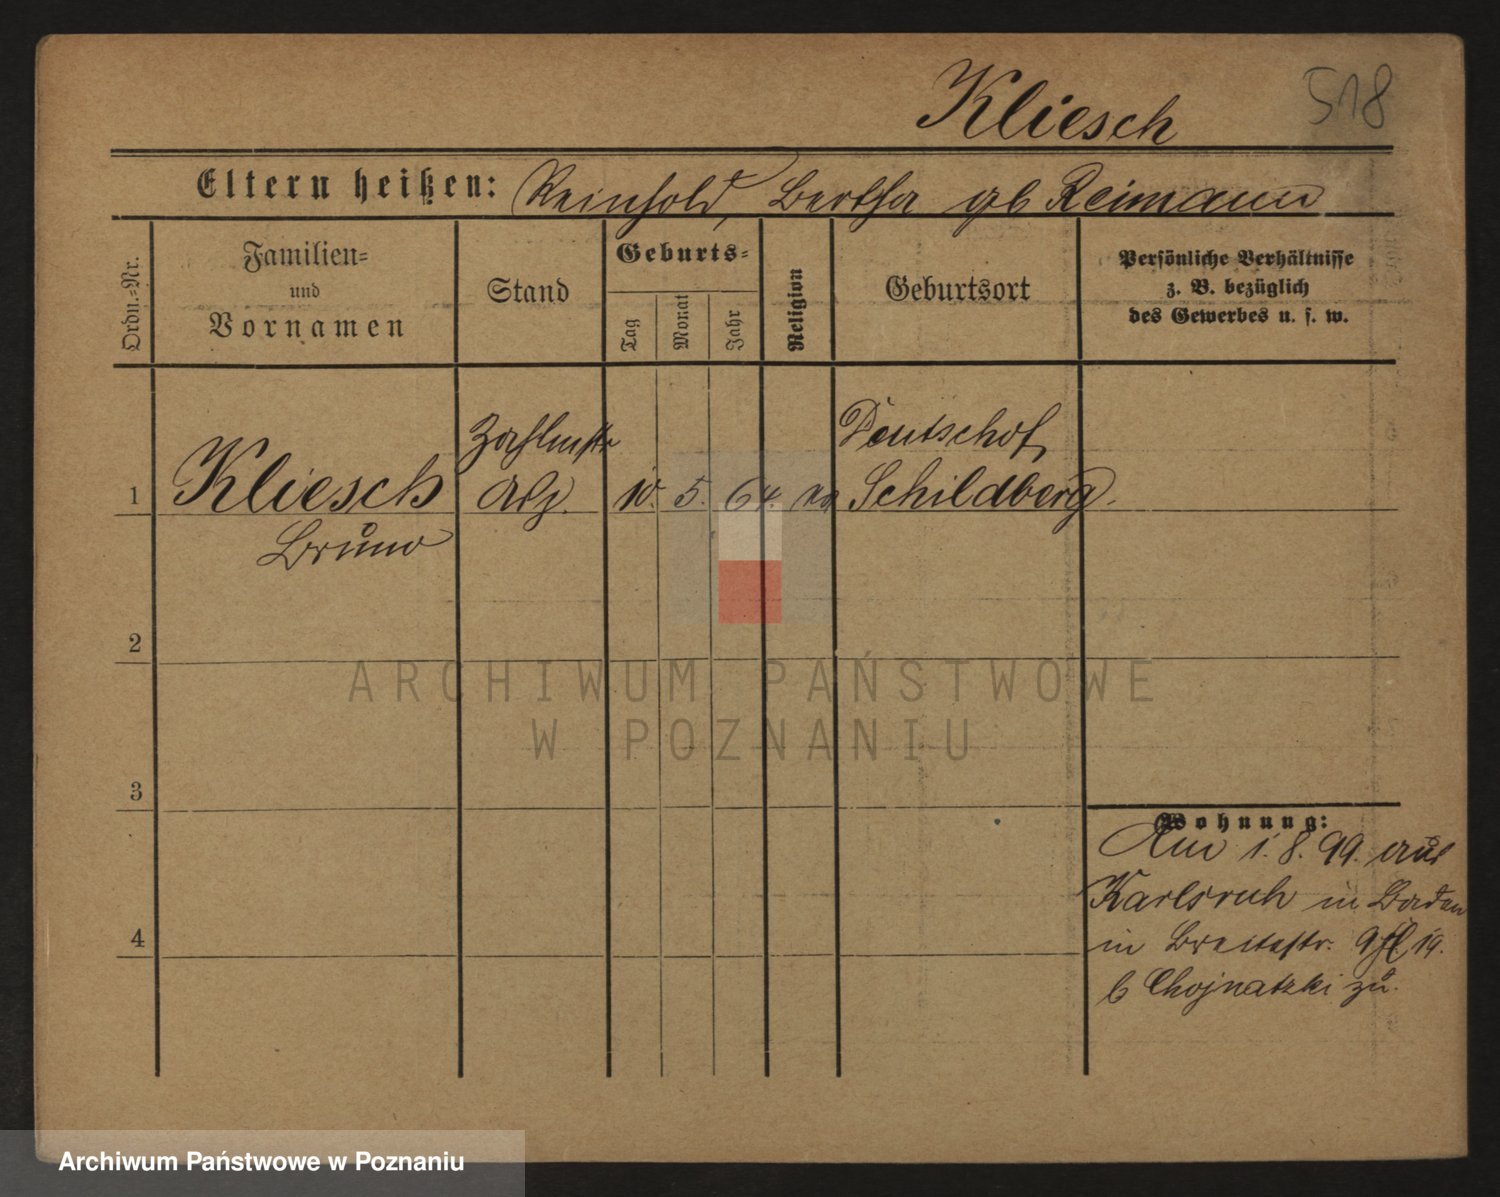 Kliesch 518
Eltern heißen: Reinhold, Bertha gb Reimann
Ordn.-Nr.
Familien-
und
Vornamen
Stand
Geburts-
Tag
Monat
Jahr
Religion
Geburtsort
Persönliche Verhältnisse
z. B. bezüglich
des Gewerbes u. s. w.
1
Kliesch
Bruno
Zahlmstr
10. 5. 64.
Deutschof,
Schildberg.
2
3
4
Wohnung:
Am 1. 8. 99. aus
Karlsruh in Baden
in Breitestr. 19.
b Chojnatzki zu.
ARCHIWUM PAŃSTWOWE
W POZNANIU
Archiwum Państwowe w Poznaniu